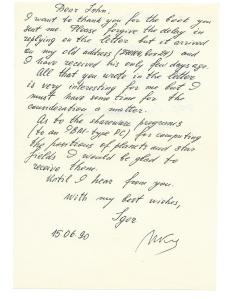 Dear John,
I want to thank you for the book you
sent me. Please forgive the delay in
replying on the letter but it arrived
on my old address (
I have received his only few days ago.
All that you wrote in the letter
is very interesting for me but I
must have some time for the
consideration a matter.
As to the shareware programs
(to an IBM-type PC) for computing
the positions of planets and star
fields I would be glad to
receive them.
Until I hear from you.
With my best wishes,
Igor
15.06.90